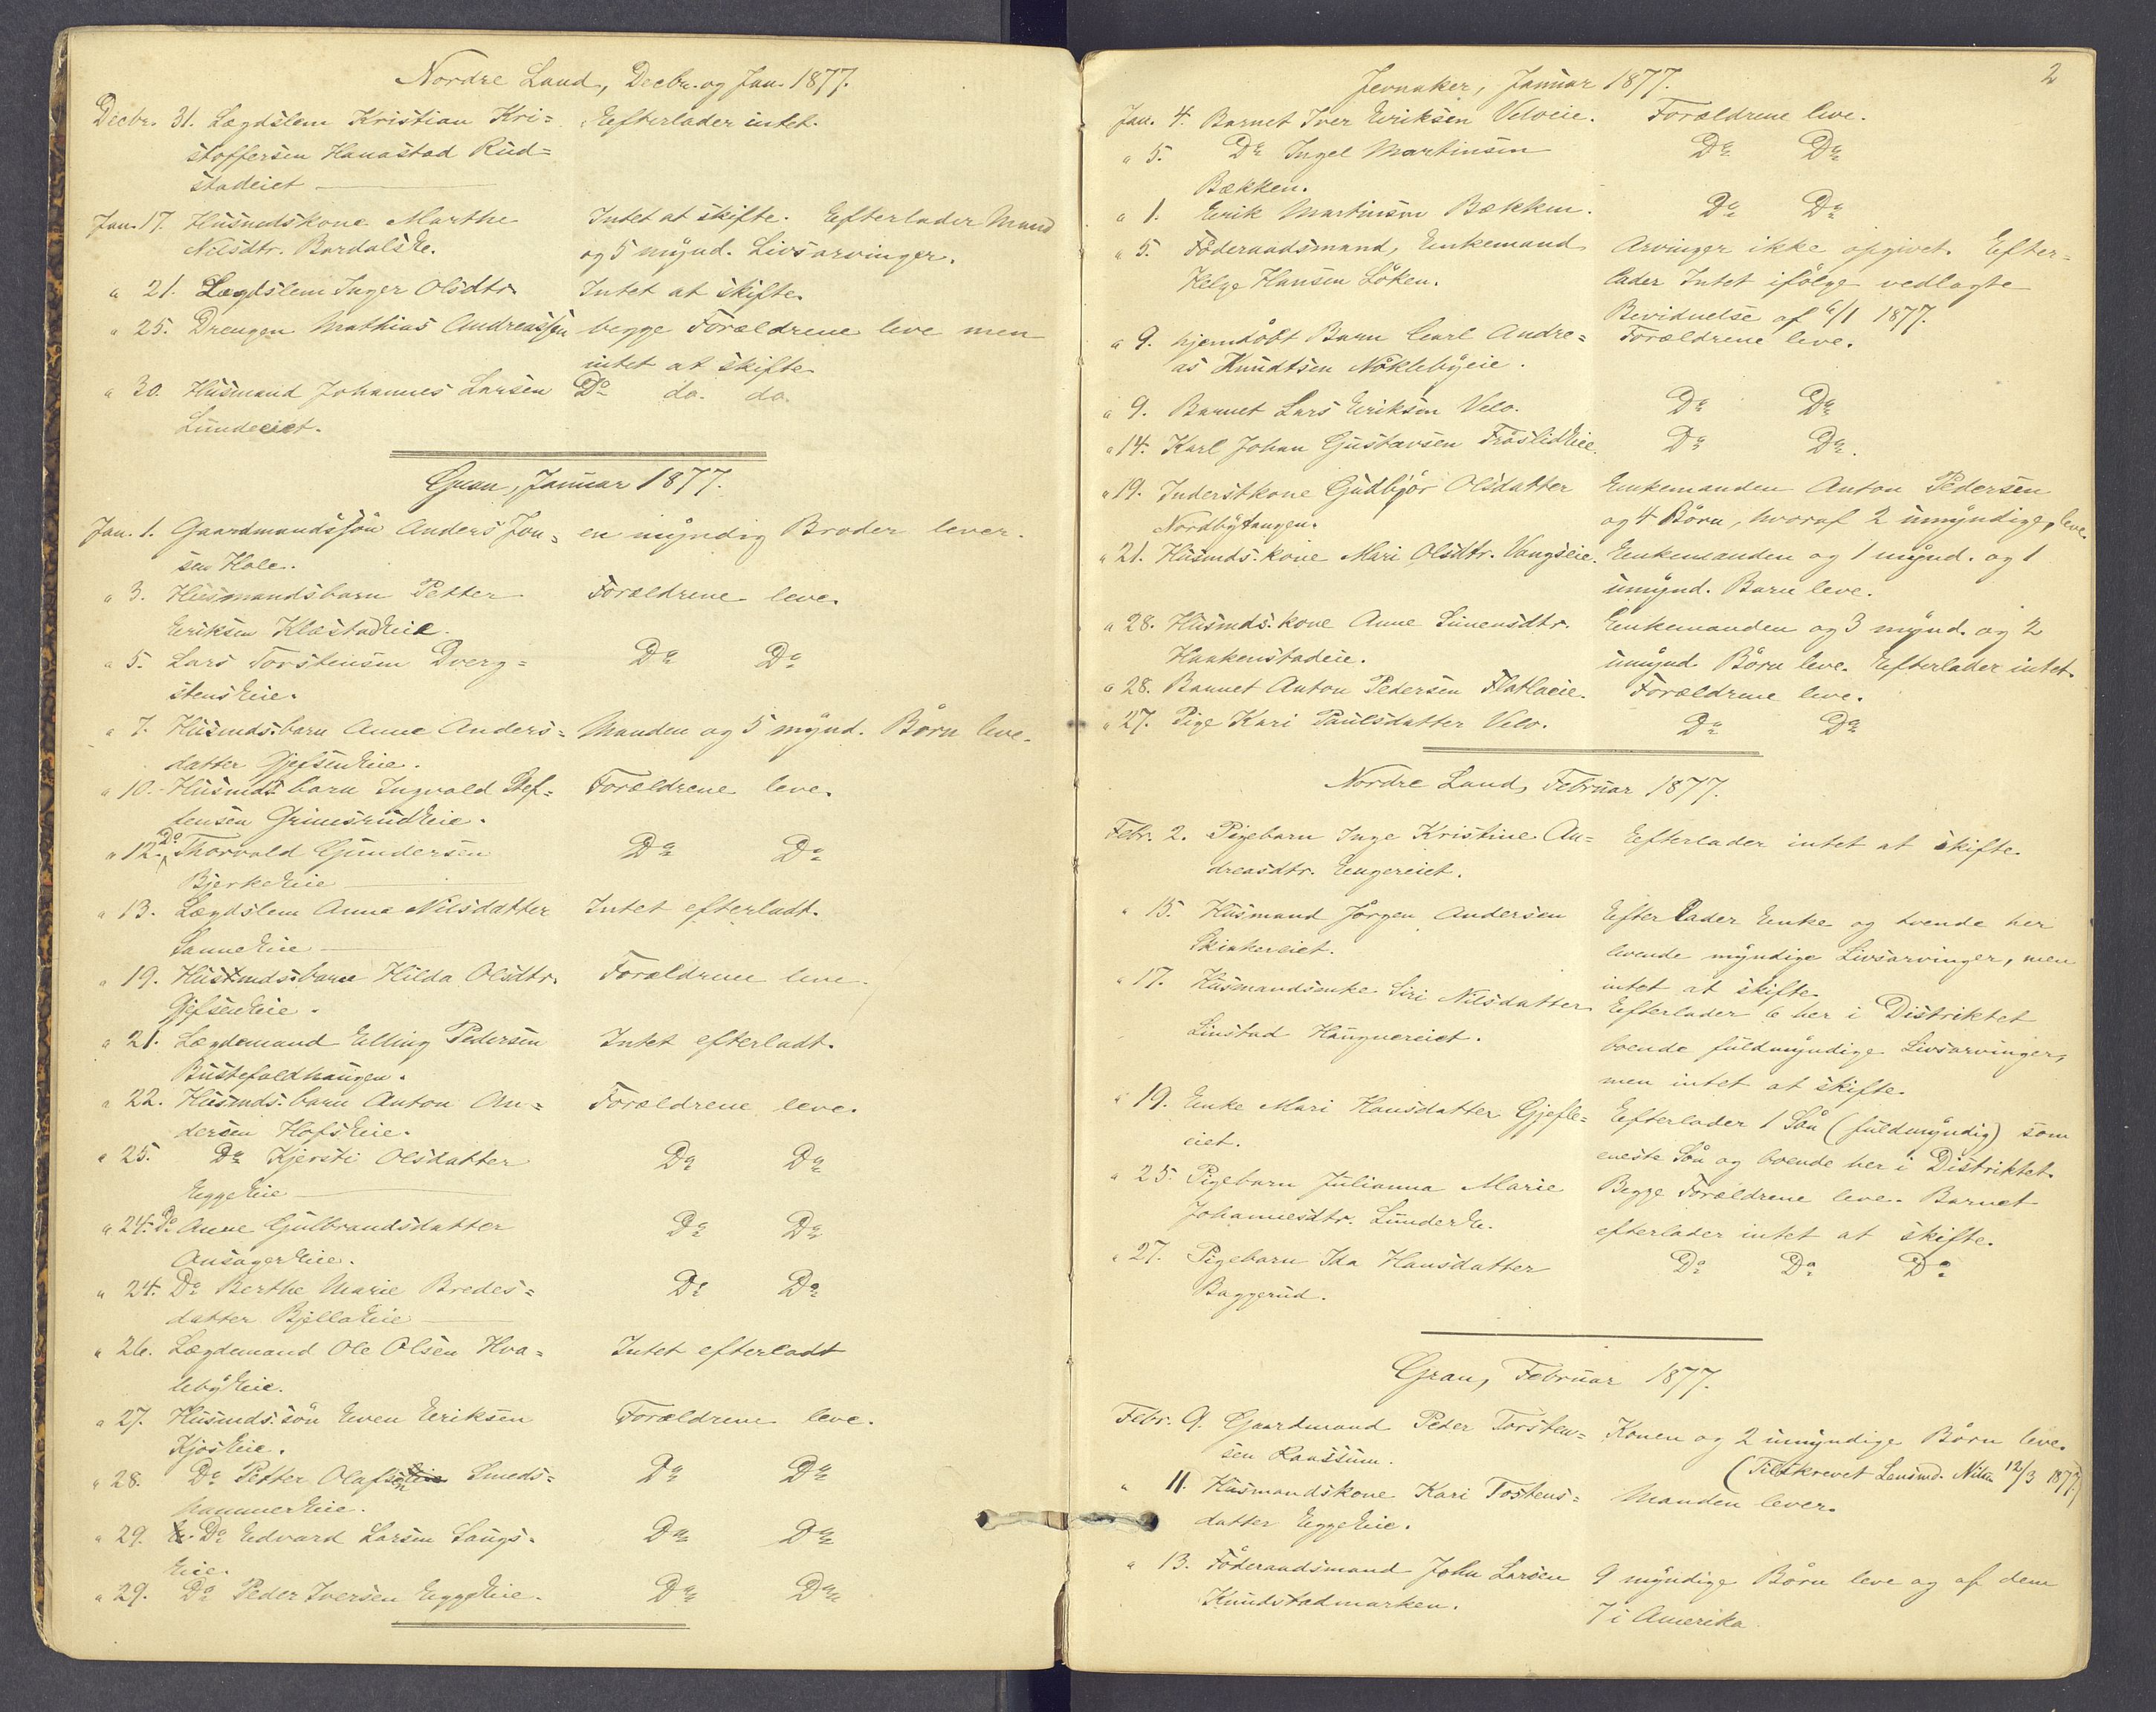 Nordre Land, Decbr. og Jan. 1877.
Decbr. 31. Lægdslem Kristian Kri= Efterlader intet.
stoffersen Hanastad Rud=
stadeiet
Jan. 17. Husmdskone Marthe Intet at skifte. Efterlader Mand
Nilsdtr. Bardals E. og 5 mynd. Livsarvinger.
" 21. Lægdslem Inger Olsdtr. Intet at skifte.
" 25. Drengen Mathias Andreassen begge Forældrene leve men
intet at skifte
" 30. Husmand Johannes Larsen Do do. do.
Lundeeiet.
Gran, Januar 1877.
Jan. 1. Gaardmandssøn Anders Jon= en myndig Broder lever.
sen Hole.
" 3. Husmandsbarn Petter Forældrene leve.
Eriksen KlæstadEie.
" 5. Lars Torstensen Dverg= Do Do
stensEie.
" 7. Husmds.barn Anne Anders= Manden og 5 mynd. Børn leve.
datter GjefsenEie.
" 10. Husmds.barn Ingvald Stef= Forældrene leve.
fensen GrimsrudEie.
" 12. Do Thorvald Gundersen Do Do
BjerkeEie
" 13. Lægdslem Anne Nilsdatter Intet efterladt.
SanneEie
" 19. Husmds.barn Hilda Olsdtr. Forældrene leve.
GjefsenEie.
" 21. Lægdemand Elling Pedersen Intet efterladt.
Bustefaldhaugen.
" 22. Husmds.barn Anton An= Forældrene leve.
dersen HofsEie.
" 25. Do Kjersti Olsdatter Do Do
EggeEie
" 24. Do Anne Gulbrandsdatter Do Do
AnsagerEie.
" 24. Do Berthe Marie Bredes= Do Do
datter BjellaEie
" 26. Lægdemand Ole Olsen Hva= Intet efterladt
lebyEie.
" 27. Husmds.søn Even Eriksen Forældrene leve.
KjosEie.
" 28. Do Petter Olafsen Smeds= Do Do
hammerEie.
" 29. Do Edvard Larsen Sangs= Do Do
Eie.
" 29. Do Peder Iversen EggeEie. Do Do
2
Jevnaker, Januar 1877.
Jan. 4. Barnet Iver Eriksen Veloeie. Forældrene leve.
" 5. Do Ingel Martinsen Do Do
Bækken.
" 1. Erik Martinsen Bækken. Do Do
" 5. Føderaadsmand, Enkemand Arvinger ikke opgivet. Efter=
Helge Hansen Løken. lader Intet ifølge vedlagte
Bevidnelse af 6/1 1877.
" 9. hjemdøbt Barn Carl Andre= Forældrene leve.
as Knudtsen Nøklebyeie.
" 9. Barnet Lars Eriksen Velo. Do Do
" 14. Karl Johan Gustavsen FrøslidEie. Do Do.
" 19. Inderstkone Gudbjør Olsdatter Enkemanden Anton Pedersen
Nordbytangen. og 4 Børn, hvoraf 2 umyndige, leve.
" 21. Husmds.kone Mari Olsdtr. Vangseie. Enkemanden og 1 mynd. og 1
umynd. Barn leve.
" 28. Husmds.kone Anne Simensdtr. Enkemanden og 3 mynd. og 2
Haakenstadeie. umynd. Børn leve. Efterlader intet.
" 28. Barnet Anton Pedersen Flatlaeie. Forældrene leve.
" 27. Pige Kari Paulsdatter Velo. Do Do
Nordre Land, Februar 1877.
Febr. 2. Pigebarn Inge Kristine An= Efterlader intet at skifte.
dreasdtr. Engereiet.
" 15. Husmand Jørgen Andersen Efterlader Enke og tvende her
Skinkereiet. levende myndige Livsarvinger, men
intet at skifte.
" 17. Husmandsenke Siri Nilsdatter Efterlader 6 her i Distriktet
Linstad Haugnereiet. boende fuldmyndige Livsarvinger,
men intet at skifte.
" 19. Enke Mari Hansdatter Gjefle= Efterlader 1 Søn (fuldmyndig) som
eiet. eneste Søn og boende her i Distriktet.
" 25. Pigebarn Julianna Marie Begge Forældrene leve. Barnet
Johannesdtr. LunderE. efterlader intet at skifte.
" 27. Pigebarn Ida Hansdatter Do Do Do
Baggerud.
Gran, Februar 1877.
Febr. 9. Gaardmand Peder Torsten= Konen og 2 umyndige Børn leve.
sen Raassum. (Tilskrevet Lensmd. 12/3 1877)
" 11. Husmandskone Kari Tostens= Manden lever.
datter EggeEie.
" 13. Føderaadsmand John Larsen 9 myndige Børn leve og af dem
Knudstadmarken. 7 i Amerika